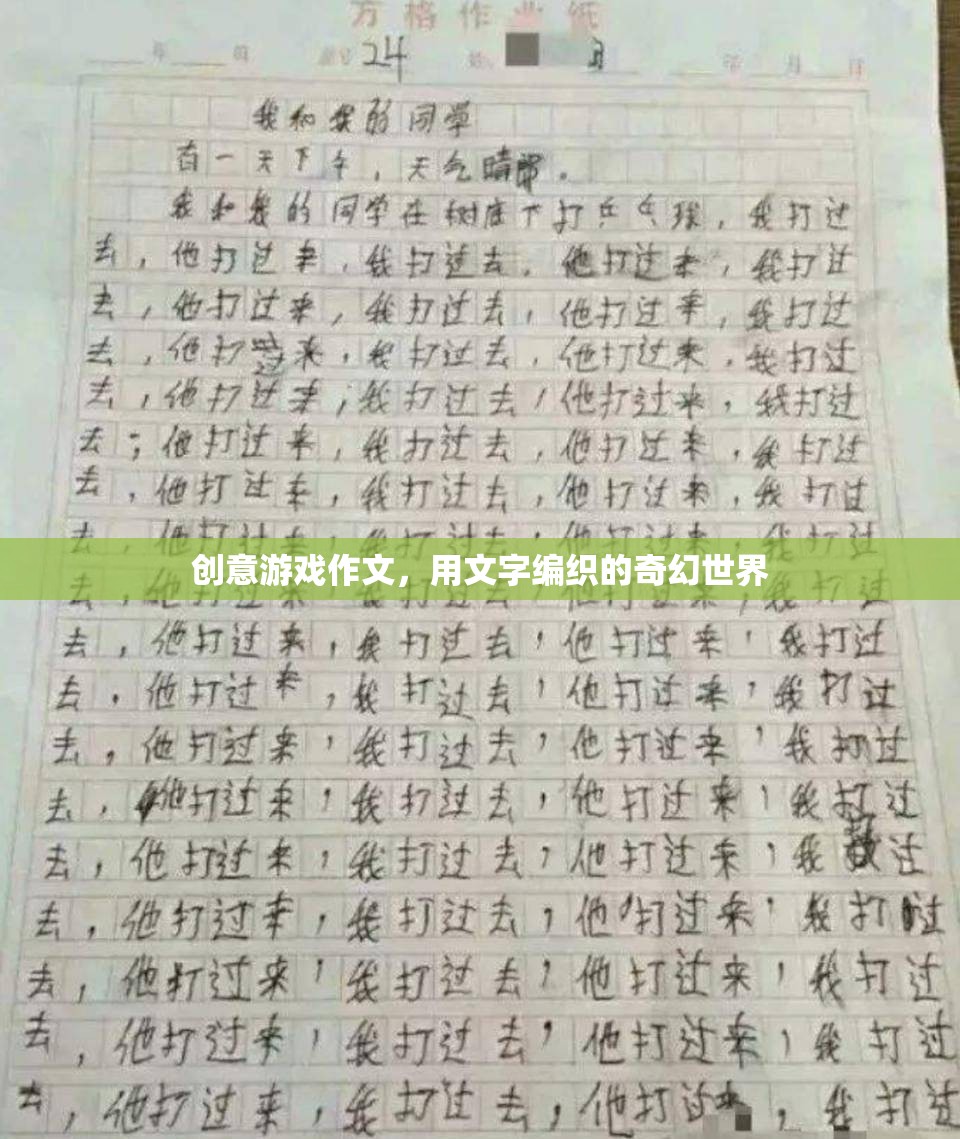 方格作业纸
24
年 月 日
我和我的同学
有一天下午，天气晴朗。
我和我的同学在树底下打乒乓球，我打过
去，他打过来，我打过去，他打过来，我打过
去，他打过来，我打过去，他打过来，我打过
去，他打过来，我打过去，他打过来，我打过
去，他打过来；我打过去，他打过来，我打过
去；他打过来，我打过去，他打过来，我打过
去，他打过来，我打过去，他打过来，我打过
去，他打过来，我打过去，他打过来，我打过
创意游戏作文，用文字编织的奇幻世界
去，他打过来，我打过去，他打过来，我打过
去，他打过来，我打过去，他打过来，我打过
去，他打过来，我打过去，他打过来，我打过
去，他打过来，我打过去，他打过来，我打过
去，他打过来，我打过去，他打过来，我打过
去，他打过来，我打过去，他打过来，我打过
去，他打过来，我打过去，他打过来，我打过
去，他打过来，我打过去，他打过来，我打过
去，他打过来，我打过去，他打过来，我打过
去，他打过来，我打过去，他打过来，我打过